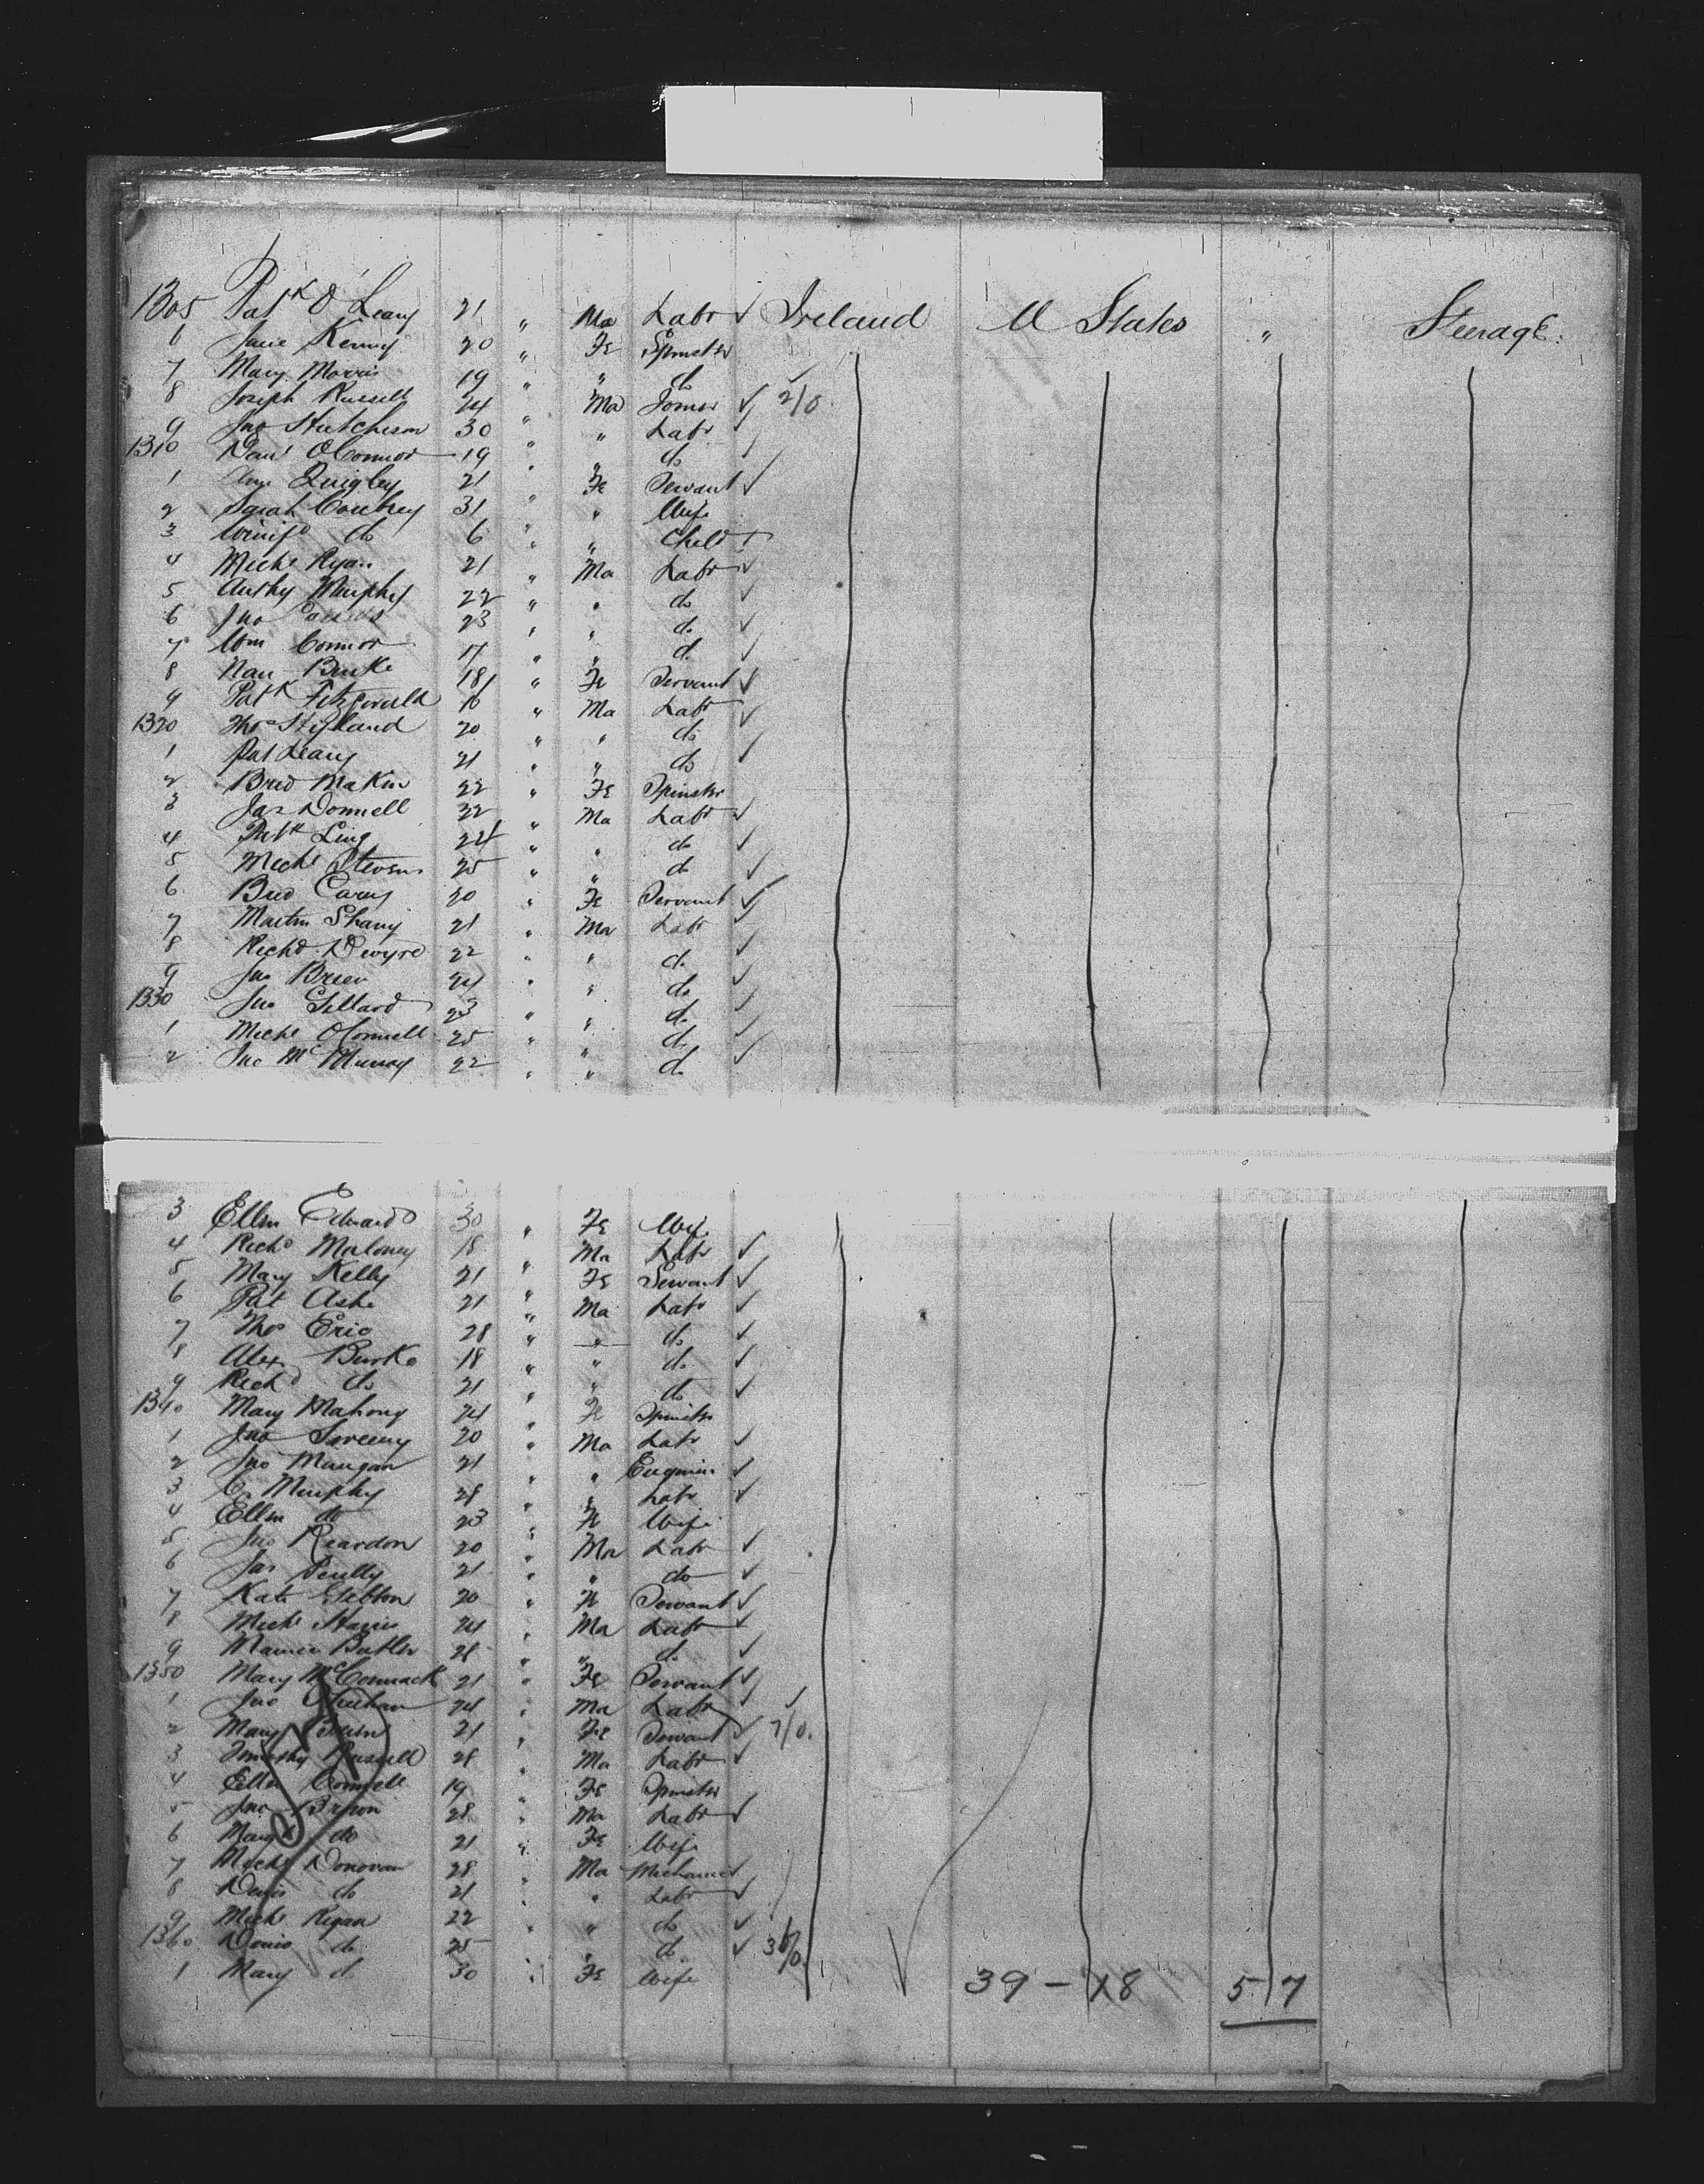 1305 Patk O'Leary 21 " Ma Labr ✓ Ireland U States " Steerage.
6 Jane Kenny 20 " Fe Spinster
7 Mary Morris 19 " " do
8 Joseph Russell 24 " Ma Joiner ✓ 2/0.
9 Jno Hutcheson 30 " " Labr ✓
1310 Danl O'Connor 19 " " do ✓
1 Quigley 21 " Fe Servant ✓
2 Sarah 31 " " Wife
3 Winifd do 6 " " Child
4 Michl Ryan 21 " Ma Labr ✓
5 Anthy Murphy 22 " " do ✓
6 Jno 23 " " do ✓
7 Wm Connor 17 " " do ✓
8 Nan Burke 18 " Fe Servant ✓
9 Patk Fitzgerald 16 " Ma Labr ✓
1320 Thos Hyland 20 " " do ✓
1 Pat Leary 21 " " do ✓
2 Brid Makin 22 " Fe Spinster
3 Jas Donnell 32 " Ma Labr ✓
4 Patk Ling 24 " " do ✓
5 Michl Stevens 25 " " do ✓
6 Brid Carey 20 " Fe Servant ✓
7 Martin 21 " Ma Labr ✓
8 Richd Dwyre 22 " " do ✓
9 Jno Breen 24 " " do ✓
1330 Jno 23 " " do ✓
1 Michl O'Connell 25 " " do ✓
2 Jno McMurray 22 " " do ✓
3 Ellen Edwards 30 " Fe Wife
4 Richd Maloney 18 " Ma Labr ✓
5 Mary Kelly 21 " Fe Servant ✓
6 Pat Ashe 21 " Ma Labr ✓
7 Thos Eric 28 " " do ✓
8 Alex Burke 18 " " do ✓
9 Richd do 21 " " do ✓
1340 Mary Mahony 24 " Fe Spinster
1 Jno Sweeny 20 " Ma Labr ✓
2 Jno Mangan 21 " " Engineer ✓
3 C Murphy 28 " " Labr ✓
4 Ellen do 23 " Fe Wife
5 Jno Reardon 20 " Ma Labr ✓
6 Jas 21 " " do ✓
7 Kate Gibbon 20 " Fe Servant ✓
8 Michl 24 " Ma Labr ✓
9 Maurice Butler 28 " " do ✓
1350 Mary McCormack 21 " Fe Servant ✓
1 Jno 24 " Ma Labr ✓
2 Mary 21 " Fe Servant ✓ 7/0.
3 Timothy Russell 28 " Ma Labr ✓
4 Ellen Connell 19 " Fe Spinster
5 Jno 28 " Ma Labr ✓
6 Margt do 21 " Fe Wife
7 Michl Donovan 28 " Ma Mechanic ✓
8 Denis do 21 " " Labr ✓
9 Michl Regan 22 " " do ✓
1360 Denis do 25 " " do ✓ 36/0.
1 Mary do 30 " Fe Wife
39 - 18 57